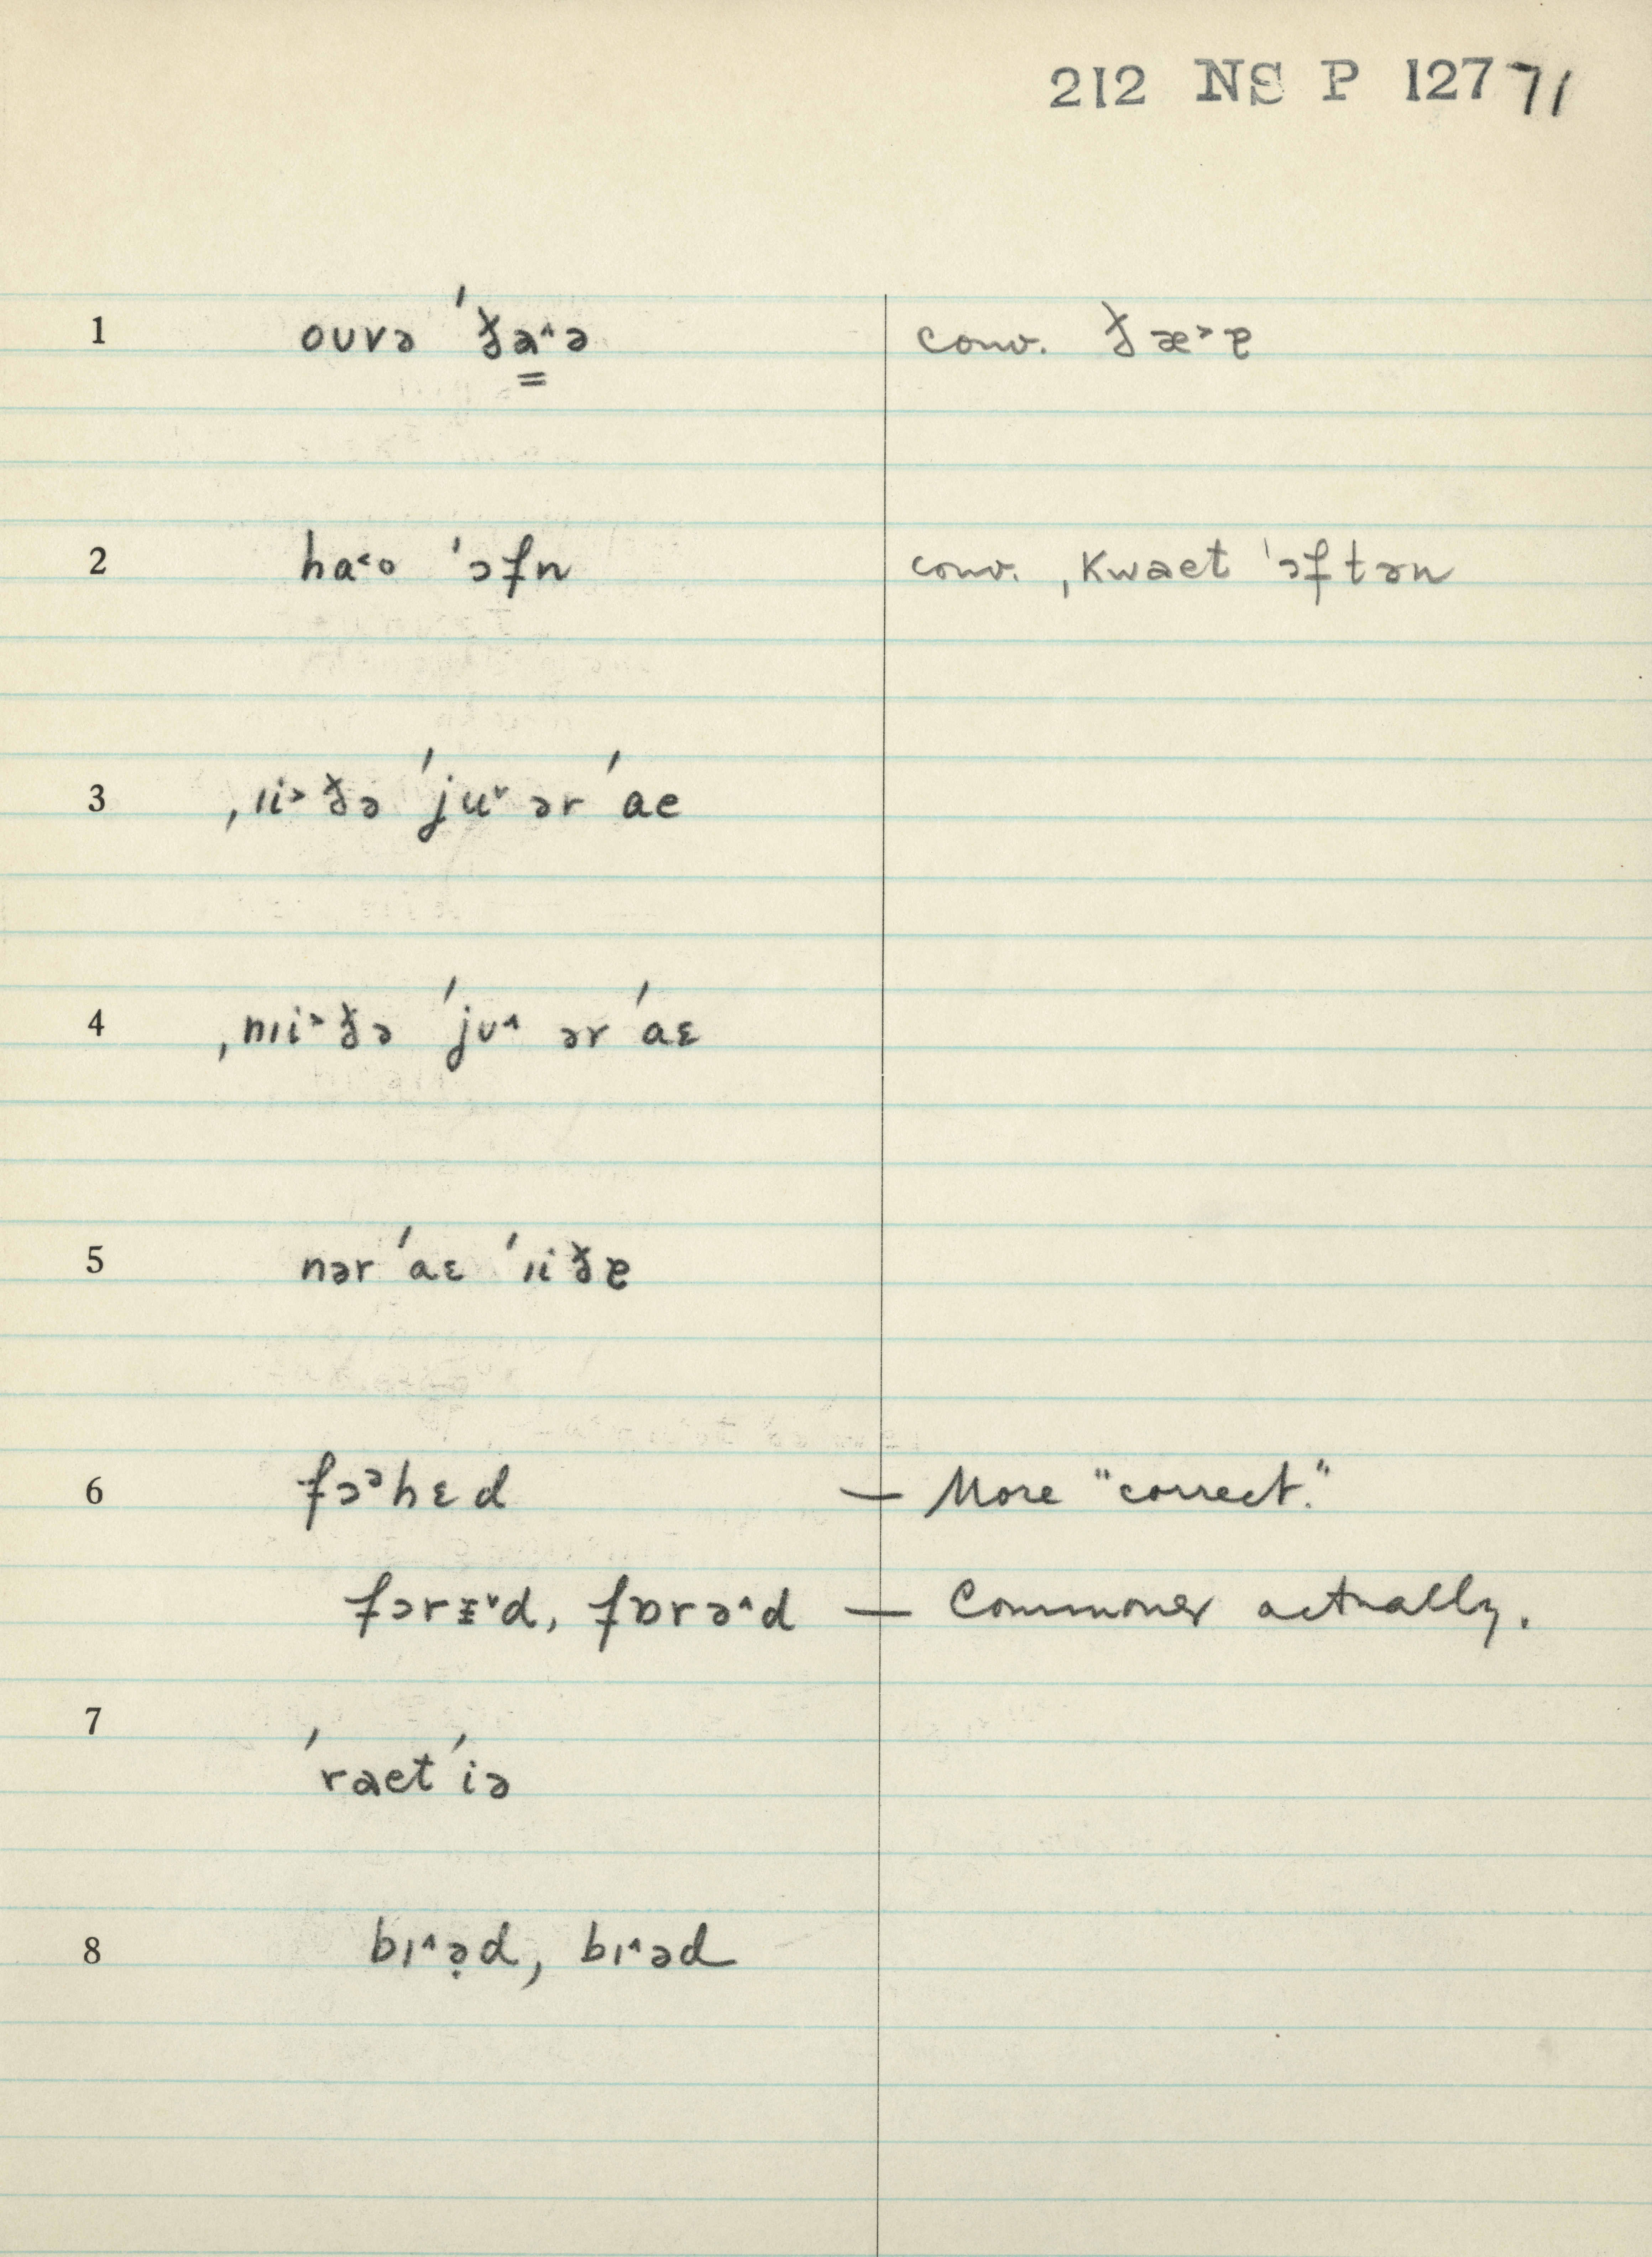 212 NS P 127 71
1 ouvə ˈða˄ə conv. ðæ˃ɐ
2 ha˂o ˈɔfn conv. ˌkwaet ˈɔftən
3 ˌɪi˃ðə ˈju˅ ər ˈae
4 ˌnɪi˃ðə ˈjʊ˄ ər ˈaɛ
5 nər ˈaɛ ˈɪiðɐ
6 fɔᵊhɛd — More "correct."
fɔrɪ˅d, fɒrə˄d — Commoner actually.
7 ˈraet ˈiə
8 bɪ˄ə̣d, bɪ˄əd